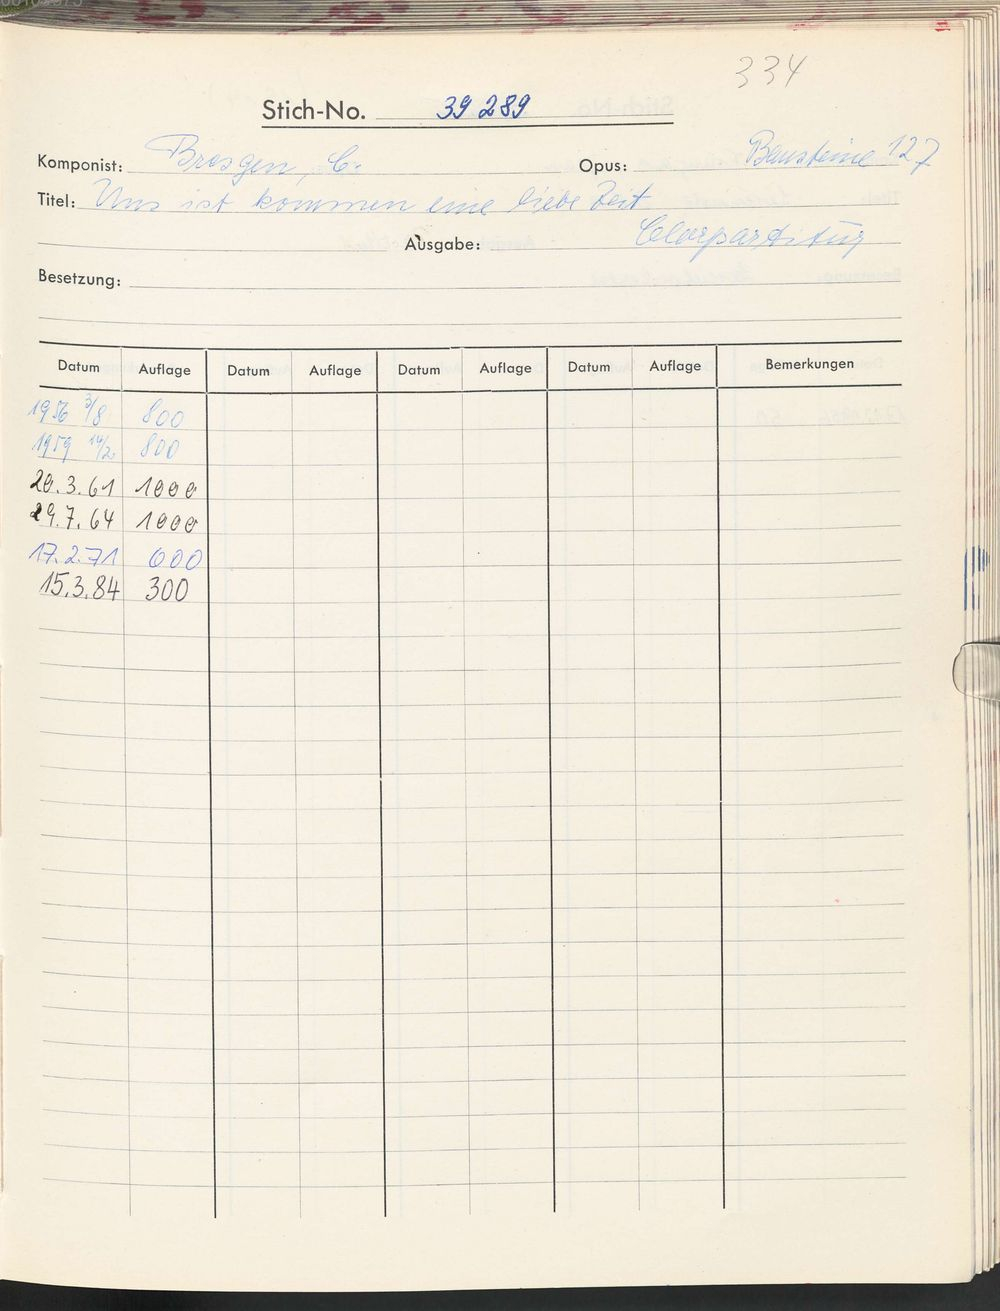 334
Stich-No. 39 289
Komponist: Bresgen, C. Opus: Bausteine 127
Titel: Uns ist kommen eine liebe Zeit
Ausgabe: Chorpartitur
Besetzung:
Datum Auflage Datum Auflage Datum Auflage Datum Auflage Bemerkungen
1956 3/8 800
1959 14/2 800
20.3.61 1000
29.7.64 1000
17.2.71 600
15.3.84 300